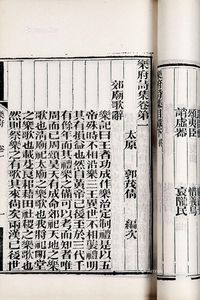 頌夷臣
誚虛器 哀隴民
樂府詩集卷第一
太原 郭茂倩 編次
郊廟歌辭
樂記曰王者功成作樂治定制禮是以五
帝殊時不相沿樂三王異世不相襲禮明
其有損益也然自黃帝已後至於三代千
有餘年而其禮樂之備可以考而知者唯
周而已周頌昊天有成命郊祀天地之樂
歌也清廟祀太廟之樂歌也我將祀明堂
之樂歌也載芟良耜藉田社稷之樂歌也
然則祭樂之有歌其來尚矣兩漢已後世
樂府 卷一